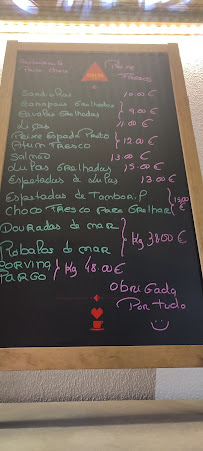 Peixe
Fresco
Sardinhas 10.00 €
Carapaus Grelhados
Cavalas Grelhadas } 9.00 €
Lulas
Peixe Espada Preto
Atum Fresco } 12.00 €
Salmão 13.00 €
Lulas Grelhadas 15.00 €
Espetadas de Lulas 13.00 €
Espetadas de Tamboril
Choco Fresco para Grelhar
Douradas de mar
Robalos do mar } Kg 38.00 €
Corvina
Pargo } Kg 48.00 €
Obrigada
Por tudo